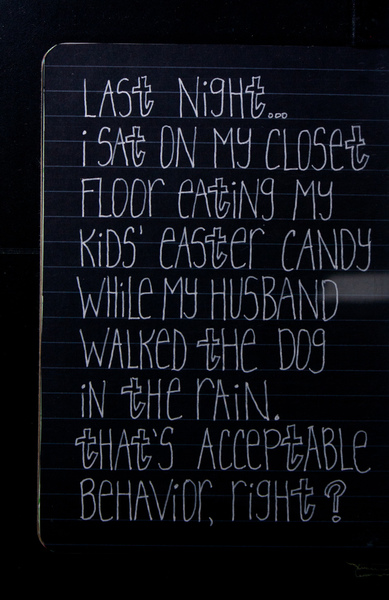 LAST NIGHT...
i SAt ON MY CLOSEt
FLOOr EAtiNg MY
KiDS' EAStEr CANDY
WHiLE MY HUSBAND
WALKED tHE DOg
iN tHE rAiN.
tHAt'S ACCEPtABLE
BEHAViOr, rigHt?